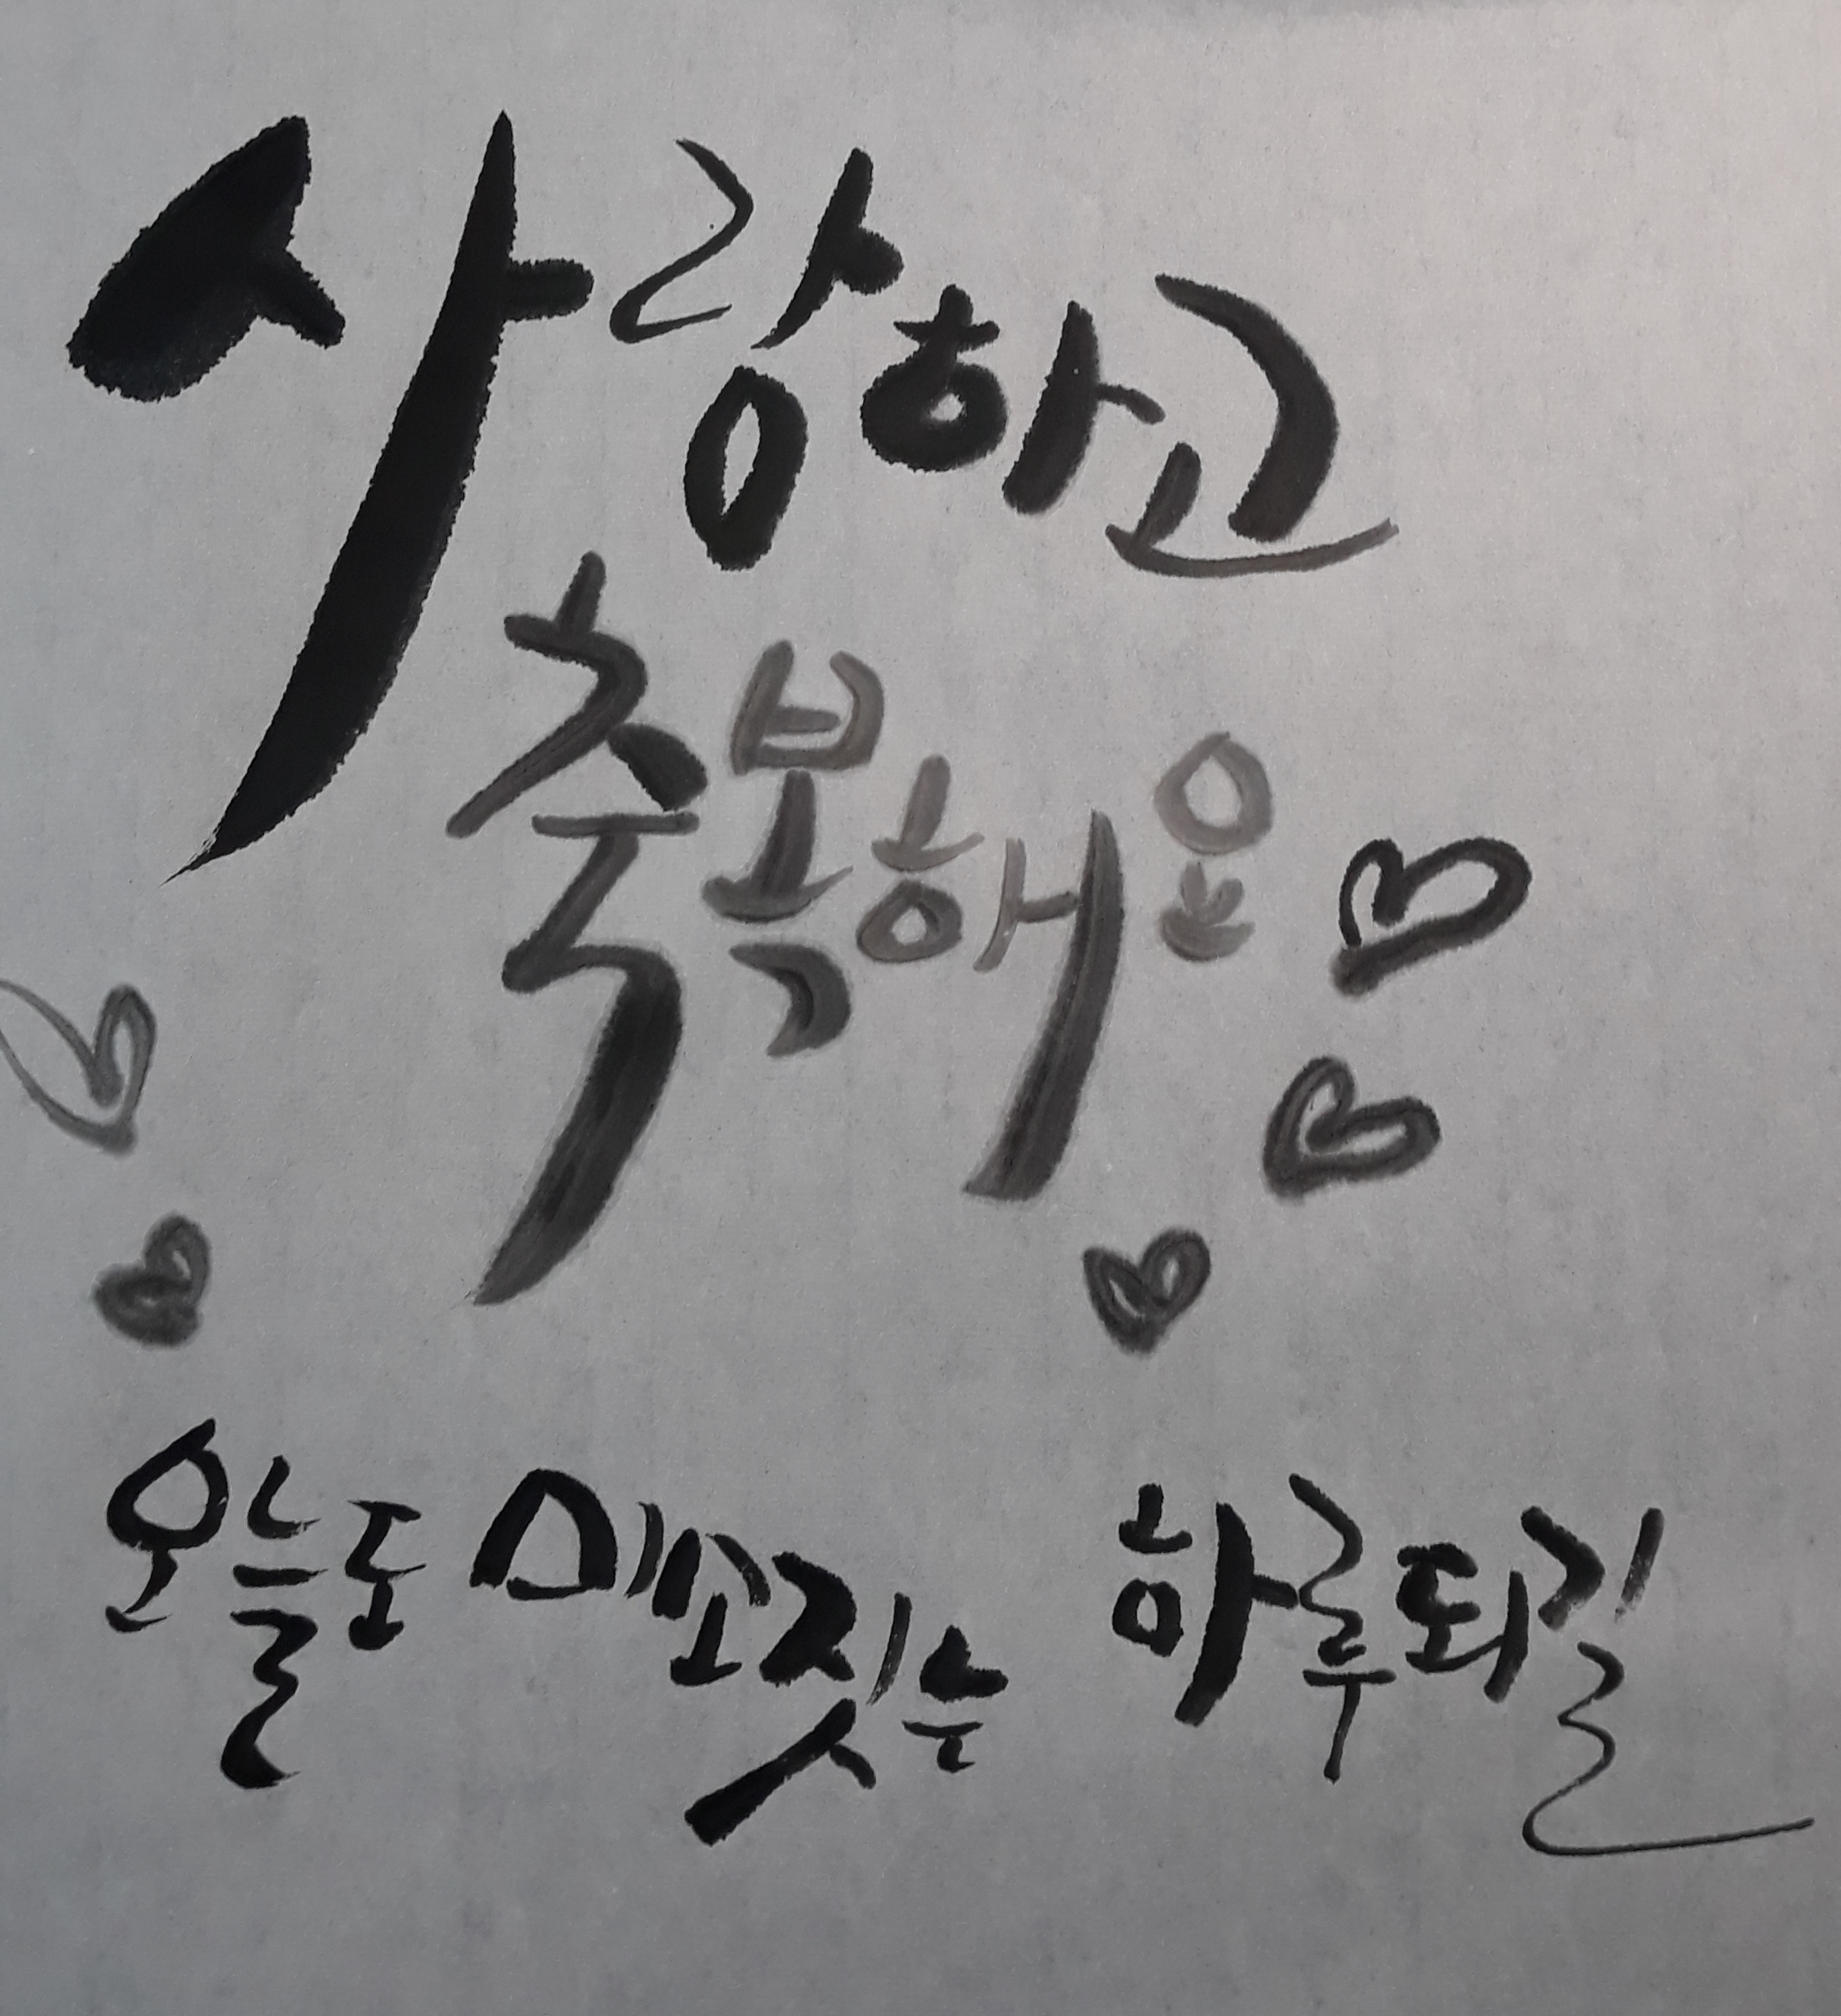 사랑하고
축복해요
오늘도 미소짓는 하루되길